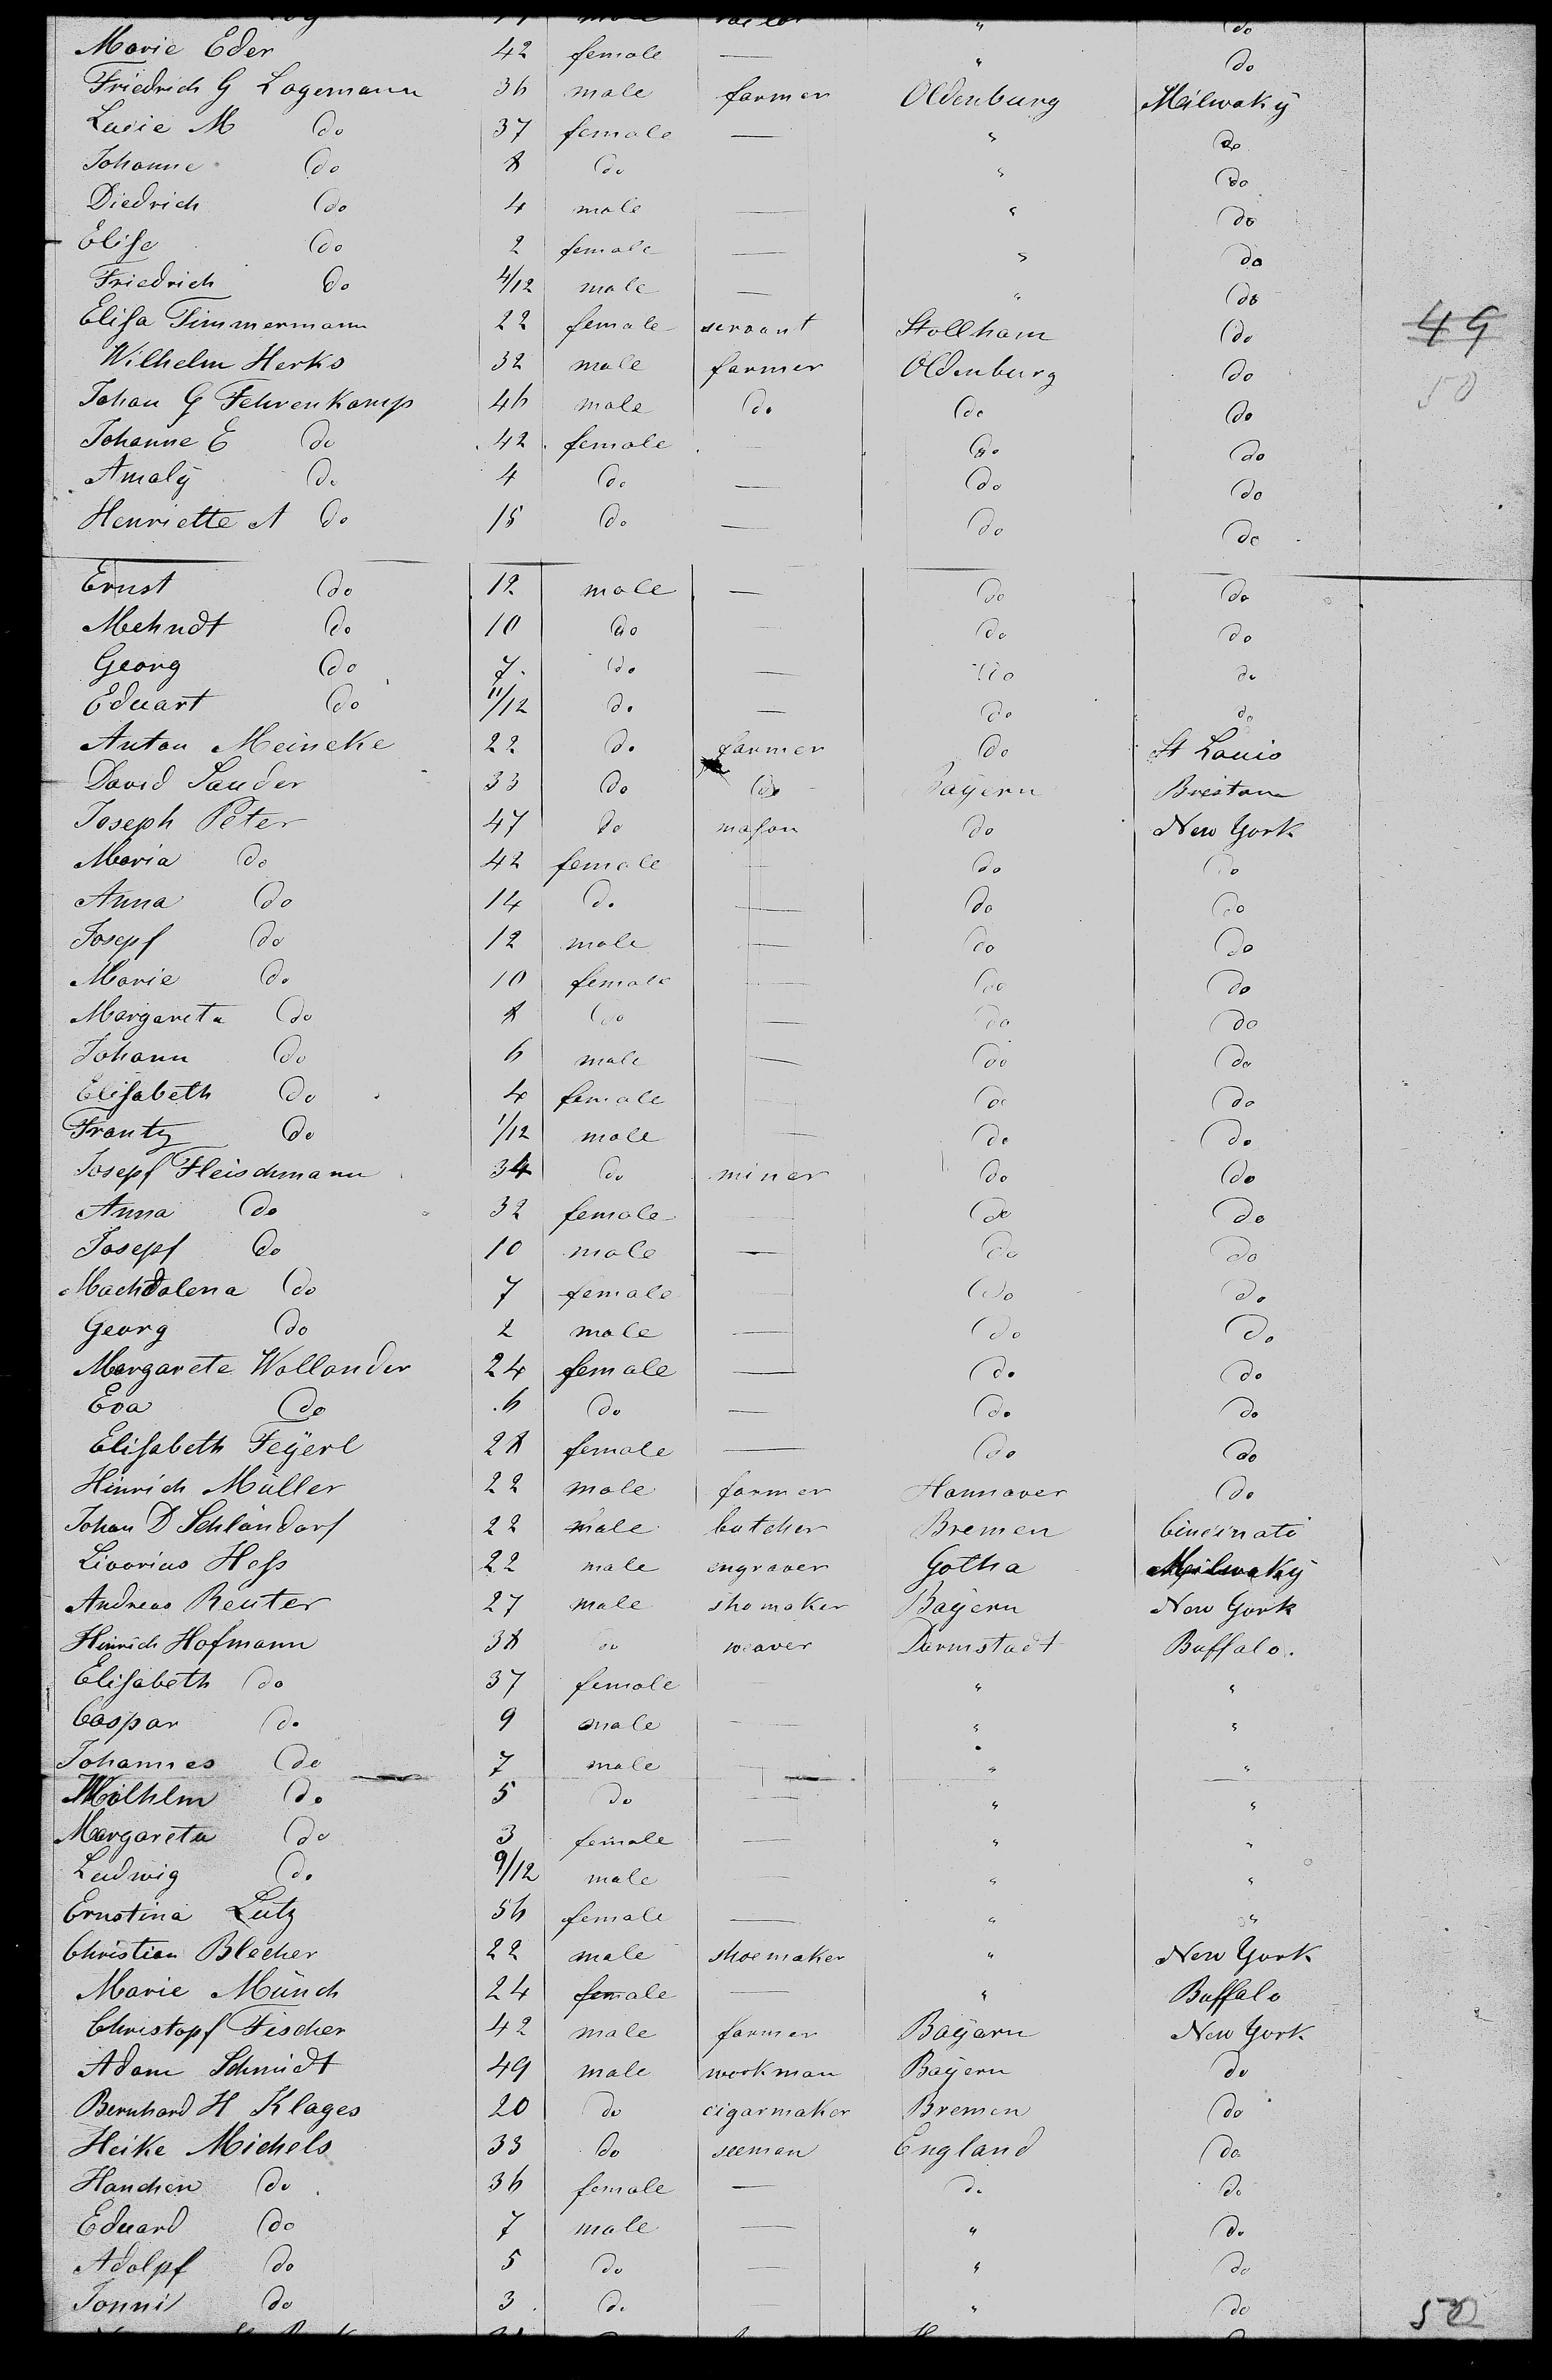 Marie Eder 42 female — " do
Friedrich G Logemann 36 male farmer Oldenburg Milwaky
Lucie M do 37 female — " do
Johanne do 8 do " do
Diedrich do 4 male — " do
Elise do 2 female — " do
Friedrich do 4/12 male — " do
Elisa Timmermann 22 female servant Stollham do
Wilhelm Herks 32 male farmer Oldenburg do
49
50
Johan G Fehrenkamp 46 male do do do
Johanne E do 42 female — do do
Amalÿ do 4 do — do do
Henriette A do 15 do — do do
Ernst do 12 male — do do
Mehndt do 10 do — do do
Georg do 7 do — do do
Eduart do 11/12 do — do do
Anton Meineke 22 do farmer do St Louis
David Sauder 33 do do Bayern
Joseph Peter 47 do mason do New York
Maria do 42 female do do
Anna do 14 do — do do
Josepf do 12 male — do do
Marie do 10 female — do do
Margareta do 8 do — do do
Johann do 6 male — do do
Elisabeth do 4 female — do do
Frantz do 1/12 male — do do
Josepf Fleischmann 34 do miner do do
Anna do 32 female — do do
Josepf do 10 male — do do
Machdalena do 7 female — do do
Georg do 2 male — do do
Margarete Wollander 24 female — do do
Eva do 6 do — do do
Elisabeth Feÿerl 28 female — do do
Hinrich Müller 22 male farmer Hannover do
Johan D Schlöndorf 22 male butcher Bremen Cincinati
Livorius Hess 22 male engraver Gotha Milwakÿ
Andreas Reuter 27 male shomaker Baÿern New York
Hinrich Hofmann 38 do weaver Darmstadt Buffalo.
Elisabeth do 37 female — " "
Caspar do 9 male — " "
Johannes do 7 male — " "
Wilhelm do 5 do — " "
Margareta do 3 female — " "
Ludwig do 9/12 male — " "
Ernstina Lutz 56 female — " "
Christian Blecher 22 male shoemaker " New York
Marie Münch 24 female — " Buffalo
Christopf Fischer 42 male farmer Bayern New York
Adam Schmidt 49 male workman Bayern do
Bernhard H Klages 20 do cigarmaker Bremen do
Heike Michels 33 do seeman England do
Hanchen do 36 female — do do
Eduard do 7 male — " do
Adolpf do 5 do — " do
Jonni do 3 do — " do
50